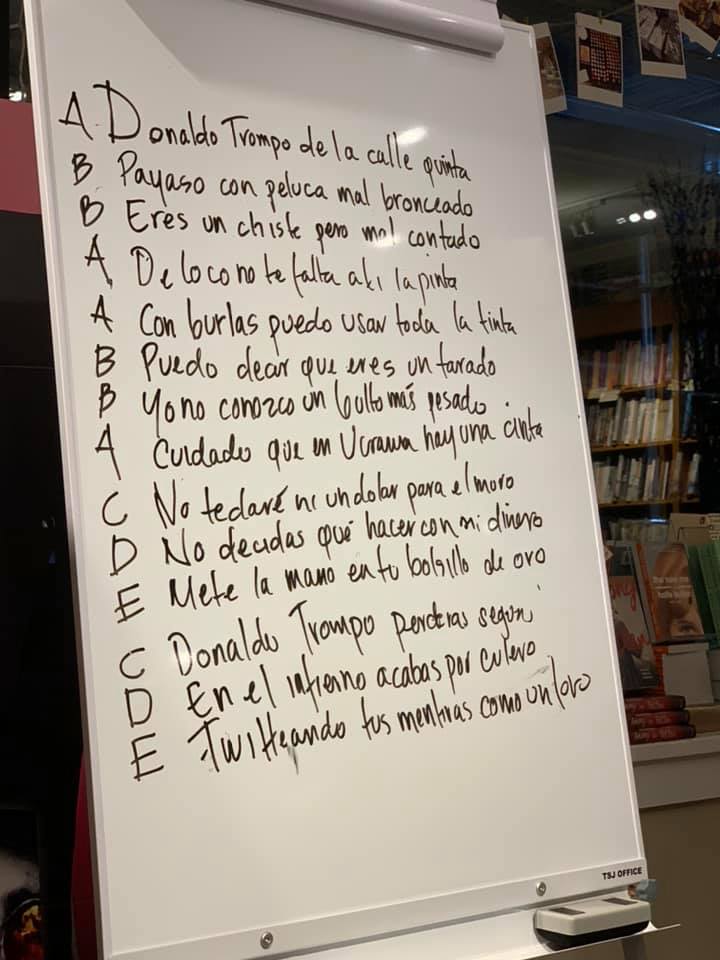 A Donaldo Trompo de la calle quinta
B Payaso con peluca mal bronceado
B Eres un chiste pero mal contado
A De loco no te falta aki la pinta
A Con burlas puedo usar toda la tinta
B Puedo decir que eres un tarado
B Yo no conozco un bulto más pesado
A Cuidado que en Ucrania hay una cinta
C No te daré ni un dolar para el muro
D No decidas qué hacer con mi dinero
E Mete la mano en tu bolsillo de oro
C Donaldo Trompo perderas segun
D En el infierno acabas por culero
E Twitteando tus mentiras como un loro
TSJ OFFICE